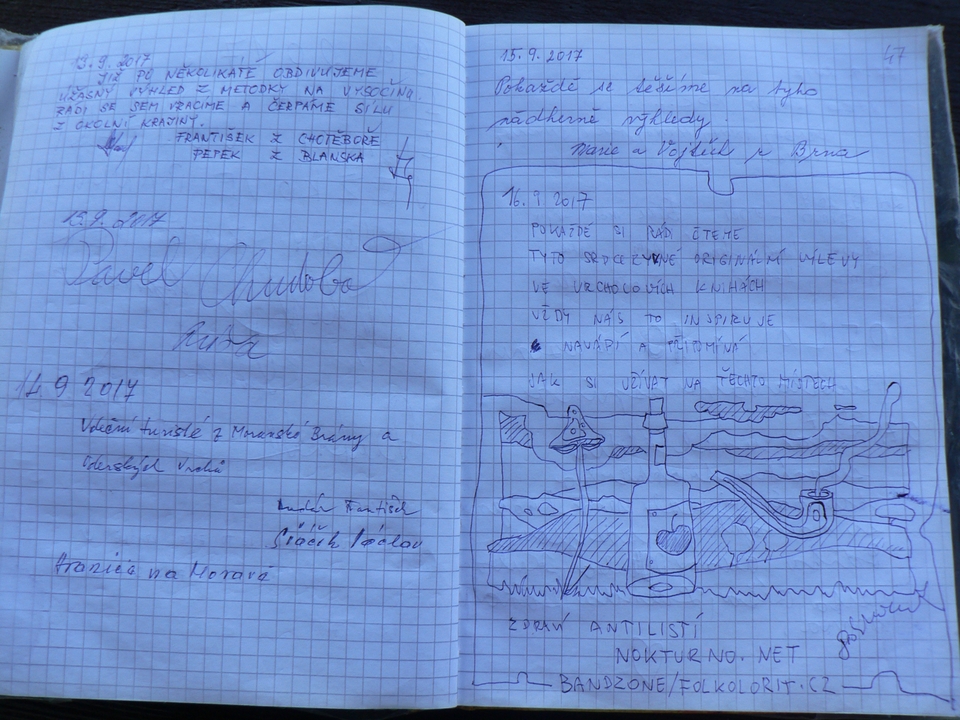 13.9.2017
JIŽ PO NĚKOLIKÁTÉ OBDIVUJEME
ÚŽASNÝ VÝHLED Z METODKY NA VYSOČINU
RÁDI SE SEM VRACÍME A ČERPÁME SÍLU
Z OKOLNÍ KRAJINY.
FRANTIŠEK Z CHOTĚBOŘE
PEPEK Z BLANSKA
15.9.2017
Pavel Chudoba
14.9 2017
Vděční turisté z Moravské Brány a
Oderských vrchů
František
Václav
Hranice na Moravě
15.9.2017
47
Pokaždé se těšíme na tyto
nádherné výhledy.
Marie a Vojtěch z Brna
16.9.2017
POKAŽDÉ SI RÁDI ČTEME
TYTO SRDCERYVNÉ ORIGINÁLNÍ VÝLEVY
VE VRCHOLOVÝCH KNIHÁCH
VŽDY NÁS TO INSPIRUJE
NAVÁDÍ A PŘIPOMÍNÁ
JAK SI UŽÍVAT NA TĚCHTO MÍSTECH
ZDRAVÍ ANTILISTÍ
NOKTURNO.NET
BANDZONE/FOLKOLORIT.CZ